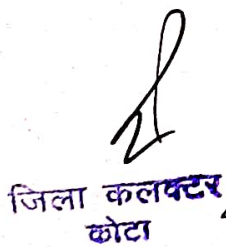 जिला कलक्टर
कोटा